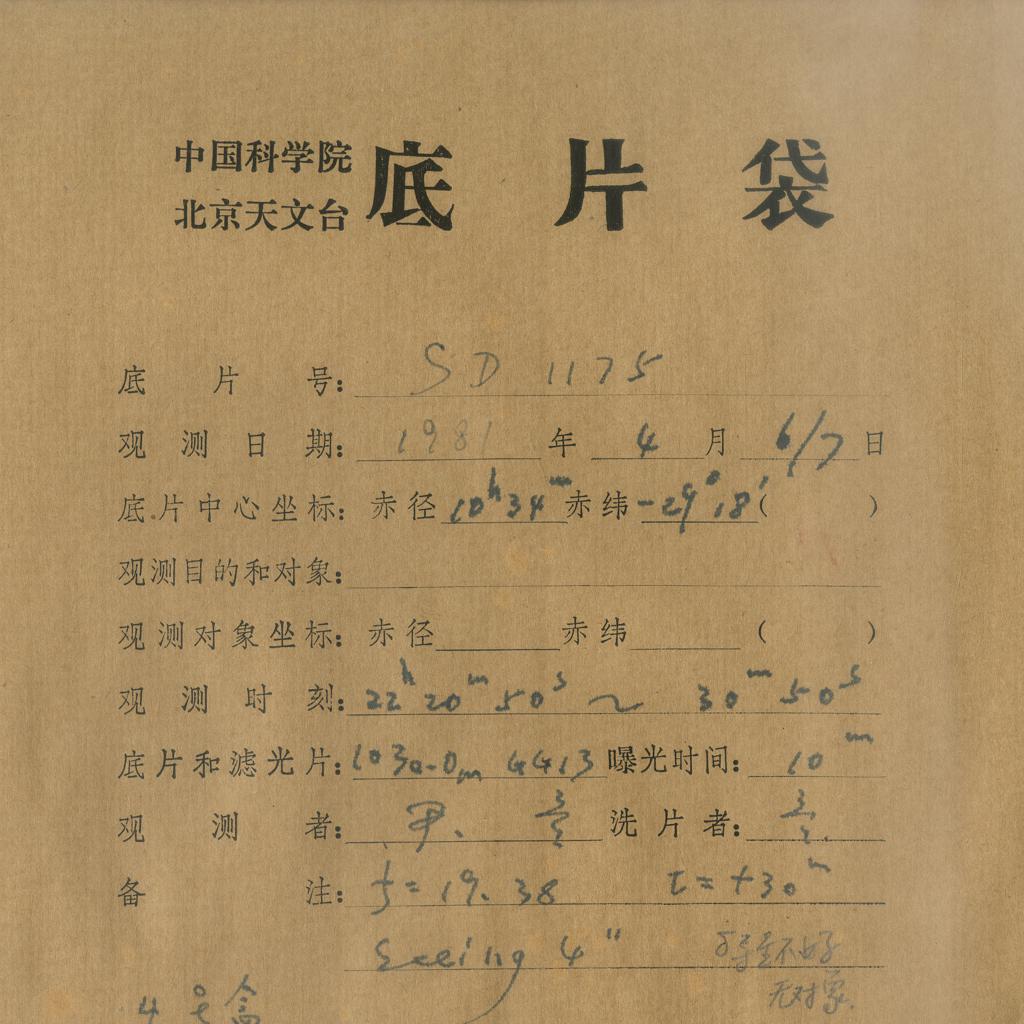 中国科学院
北京天文台
底片袋
底片号: SD 1175
观测日期: 1981 年 4 月 6/7 日
底片中心坐标: 赤径 10h34m 赤纬 -29°18′ ( )
观测目的和对象:
观测对象坐标: 赤径 赤纬 ( )
观测时刻: 22h 20m 50s ~ 30m 50s
底片和滤光片: 103a-Om 4413 曝光时间: 10m
观测者: 洗片者:
备注: f = 19.38 t = +30m
Seeing 4" 导星不好
无对象.
4号盒